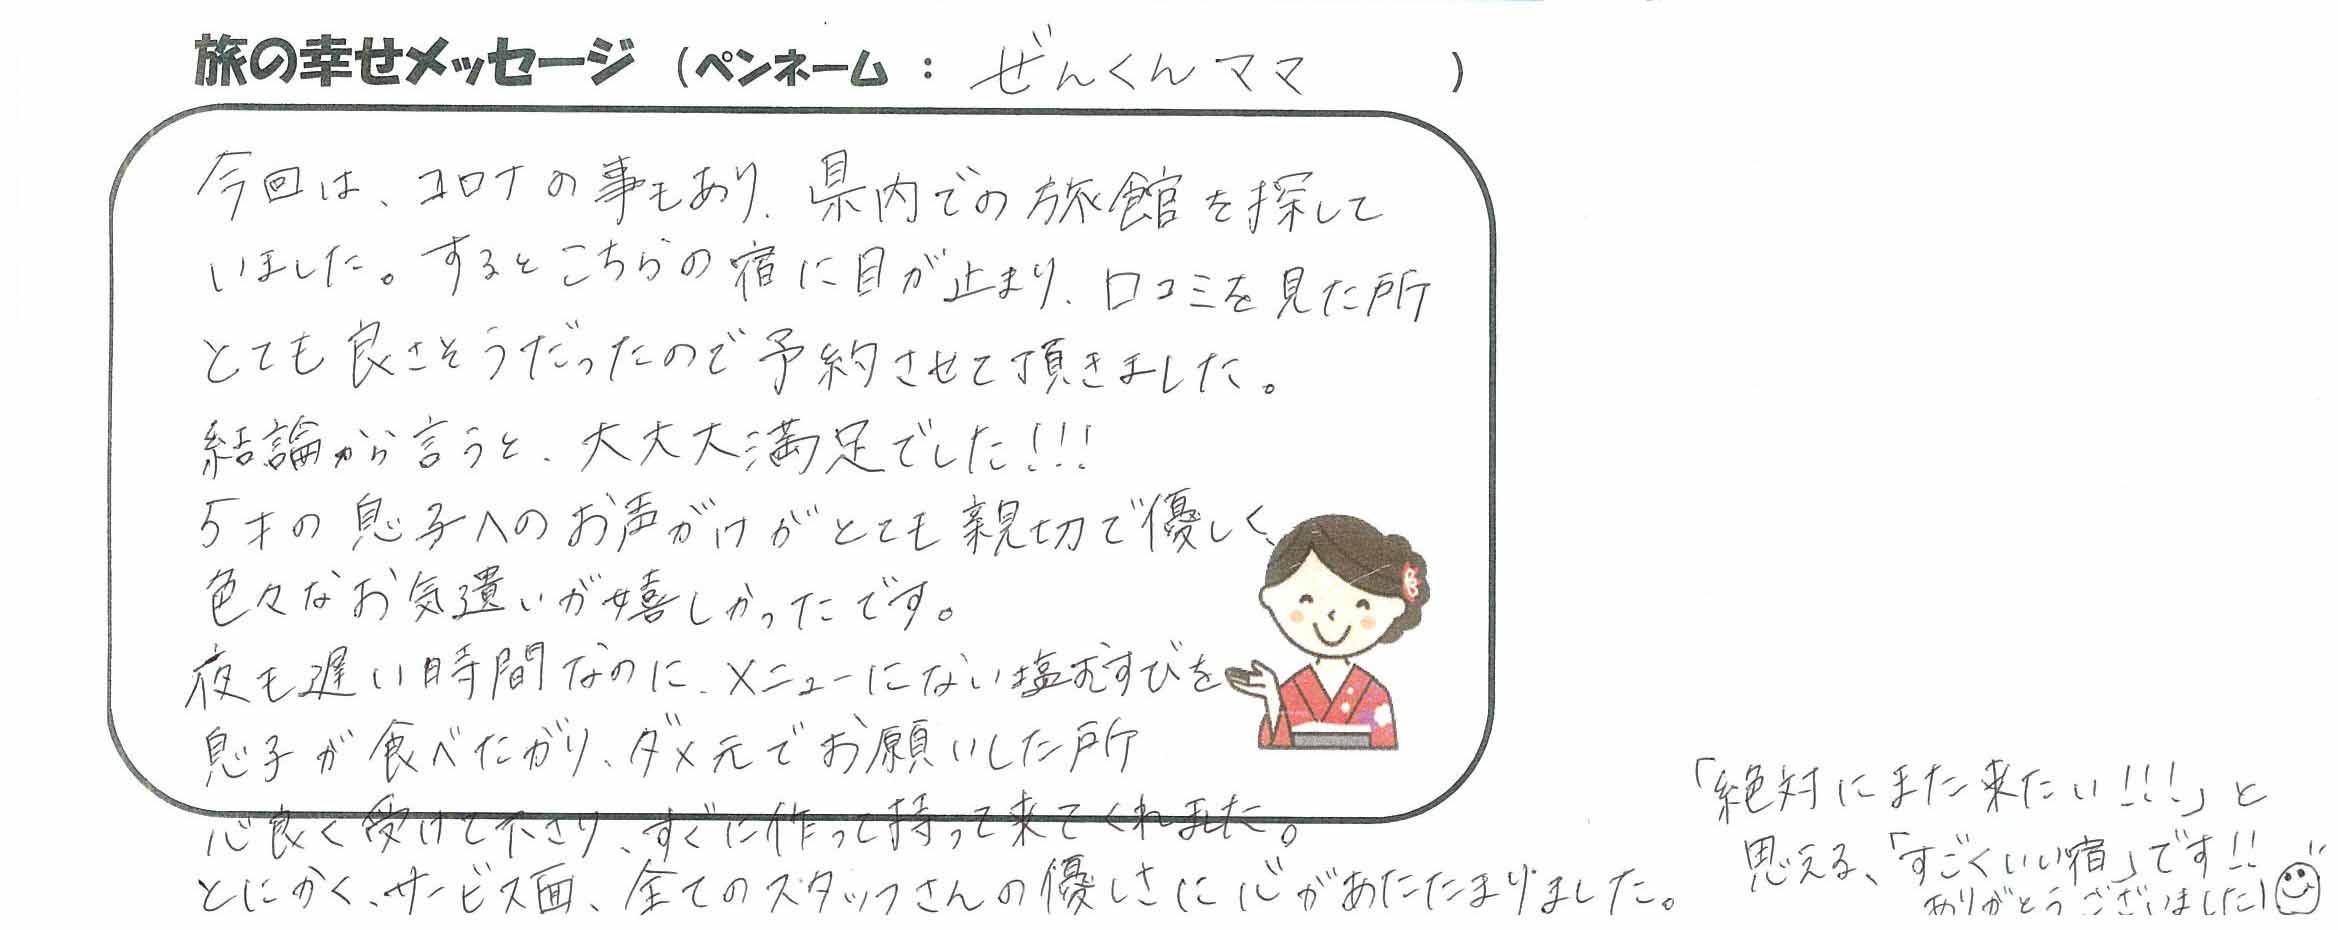 旅の幸せメッセージ (ペンネーム : ぜんくんママ )
今回は、コロナの事もあり、県内での旅館を探して
いました。するとこちらの宿に目が止まり、口コミを見た所
とても良さそうだったので予約させて頂きました。
結論から言うと、大大大満足でした!!!
5才の息子へのお声がけがとても親切で優しく、
色々なお気遣いが嬉しかったです。
夜も遅い時間なのに、メニューにない塩むすびを
息子が食べたがり、ダメ元でお願いした所
心良く受けて下さり、すぐに作って持って来てくれました。
とにかく、サービス面、全てのスタッフさんの優しさに心があたたまりました。
「絶対にまた来たい!!!」と
思える、「すごくいい宿」です!!
ありがとうございました!